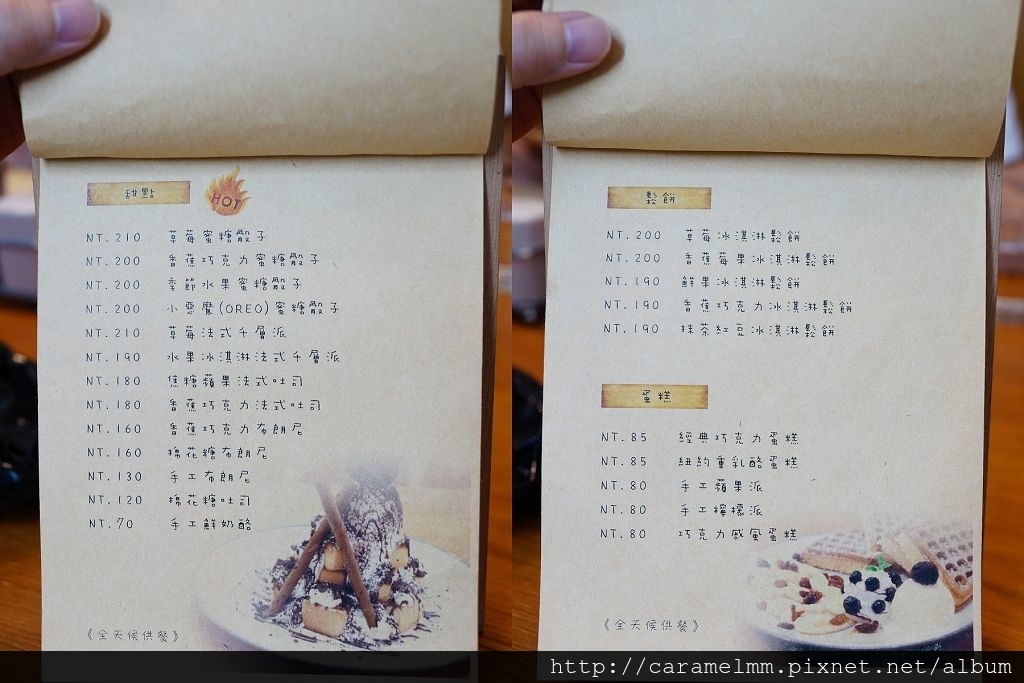 甜點
HOT
NT.210 草莓蜜糖骰子
NT.200 香蕉巧克力蜜糖骰子
NT.200 季節水果蜜糖骰子
NT.200 小惡魔(OREO)蜜糖骰子
NT.210 草莓法式千層派
NT.190 水果冰淇淋法式千層派
NT.180 焦糖蘋果法式吐司
NT.180 香蕉巧克力法式吐司
NT.160 香蕉巧克力布朗尼
NT.160 棉花糖布朗尼
NT.130 手工布朗尼
NT.120 棉花糖吐司
NT.70 手工鮮奶酪
《全天候供餐》
鬆餅
NT.200 草莓冰淇淋鬆餅
NT.200 香蕉莓果冰淇淋鬆餅
NT.190 鮮果冰淇淋鬆餅
NT.190 香蕉巧克力冰淇淋鬆餅
NT.190 抹茶紅豆冰淇淋鬆餅
蛋糕
NT.85 經典巧克力蛋糕
NT.85 紐約重乳酪蛋糕
NT.80 手工蘋果派
NT.80 手工檸檬派
NT.80 巧克力戚風蛋糕
《全天候供餐》
http://caramelmm.pixnet.net/album